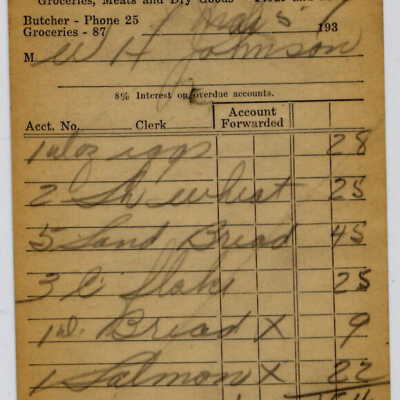 Groceries, Meats and Dry Goods
Butcher - Phone 25
Groceries - 87
193
M W H Johnson
8% Interest on overdue accounts.
Account Forwarded
Acct. No. Clerk
1 doz eggs 28
2 Sh wheat 25
5 Sand Bread 45
3 C flake 25
1 W. Bread X 9
1 Salmon X 22